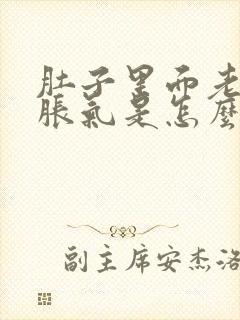 肚子里面老
胀气是怎么
副主席安杰洛